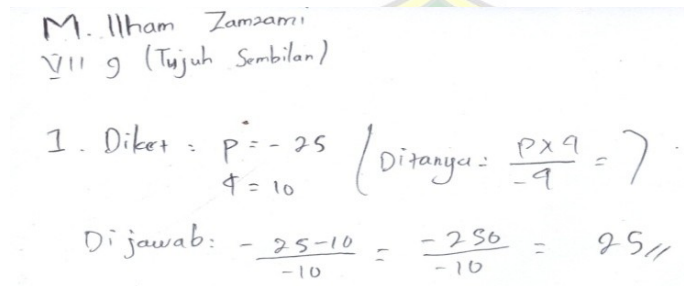 M. Ilham Zamzami
VII 9 (Tujuh Sembilan)
1. Diket : p = - 25 / Ditanya : p x q / -q = ?
q = 10
Dijawab : - 25-10 / -10 = - 250 / -10 = 25 //